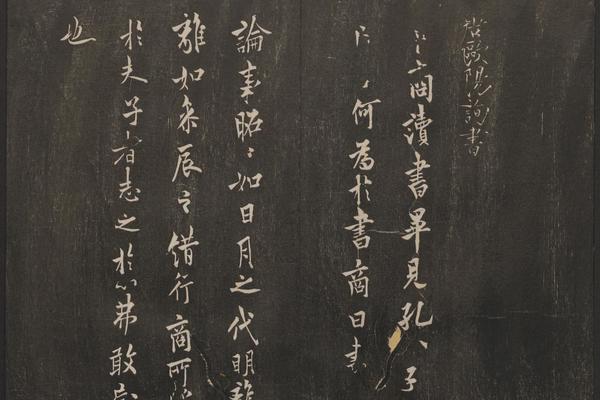 唐歐陽詢書
卜商讀書畢見孔〻子
何為於書商曰書
論事昭〻如日月之代明離
離如參辰之錯行商所
於夫子者志之於心弗敢忘
也